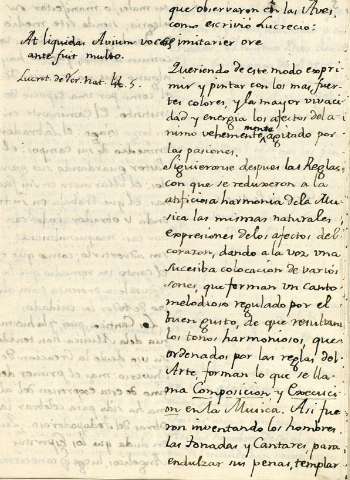 que observaron en las Aves,
como escrivió Lucrecio:
At liquidas Avium voces imitarier ore
ante fuit multo.
Lucret. de Rer. nat. lib. 5.
Queriendo de este modo expri-
mir y pintar con los mas fuer-
tes colores, y la mayor vivaci-
dad y energia los afectos del a-
nimo vehementemente agitado por
las pasiones.
Siguieronse despues las Reglas
con que se reduxeron a la
artificiosa harmonia de la Mu-
sica las mismas naturales
expresiones de los afectos del
corazon, dando a la voz una
sucesiba colocacion de varios
sones, que forman un canto
melodioso regulado por el
buen gusto, de que resultaron
los tonos harmoniosos, que
ordenados por las reglas del
Arte forman lo que se lla-
ma Composicion y Execusi-
on en la Musica. Asi fue
ron inventando los hombres
las Tonadas y Cantares, para
endulzar sus penas, templar